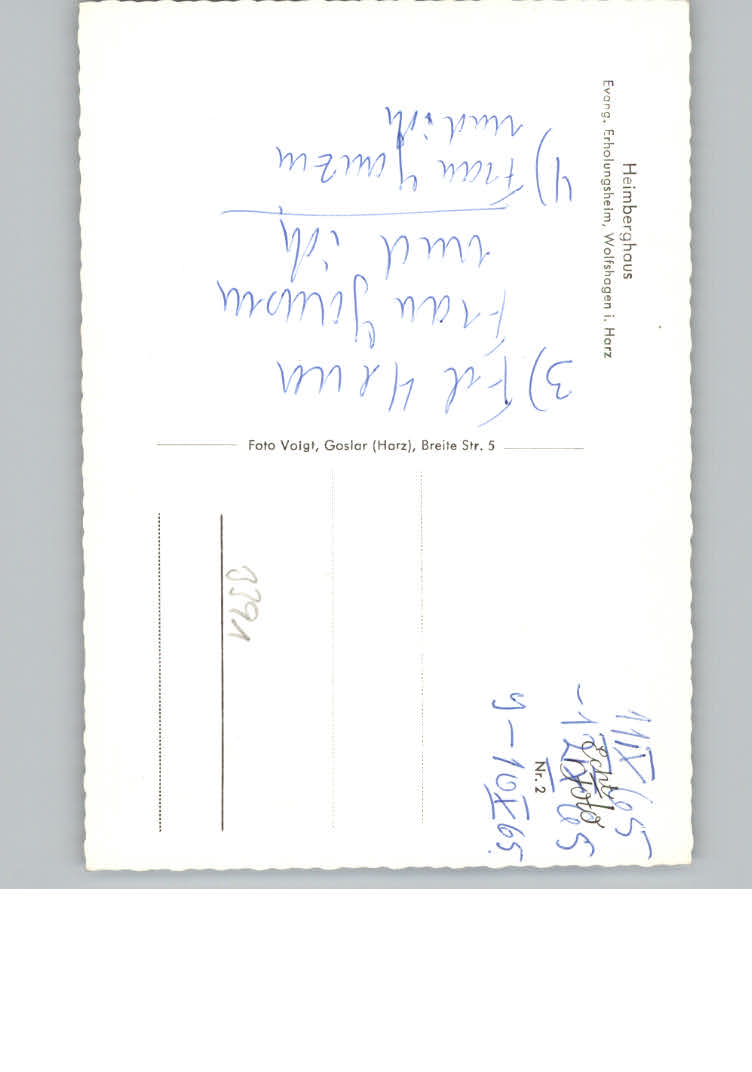 Heimberghaus
Evang. Erholungsheim, Wolfshagen i. Harz
3) Frl
Frau
und ich
4) Frau
und ich
Foto Voigt, Goslar (Harz), Breite Str. 5
3391
11 IX 65
Echt Foto
Nr. 2
9 - 10 X 65